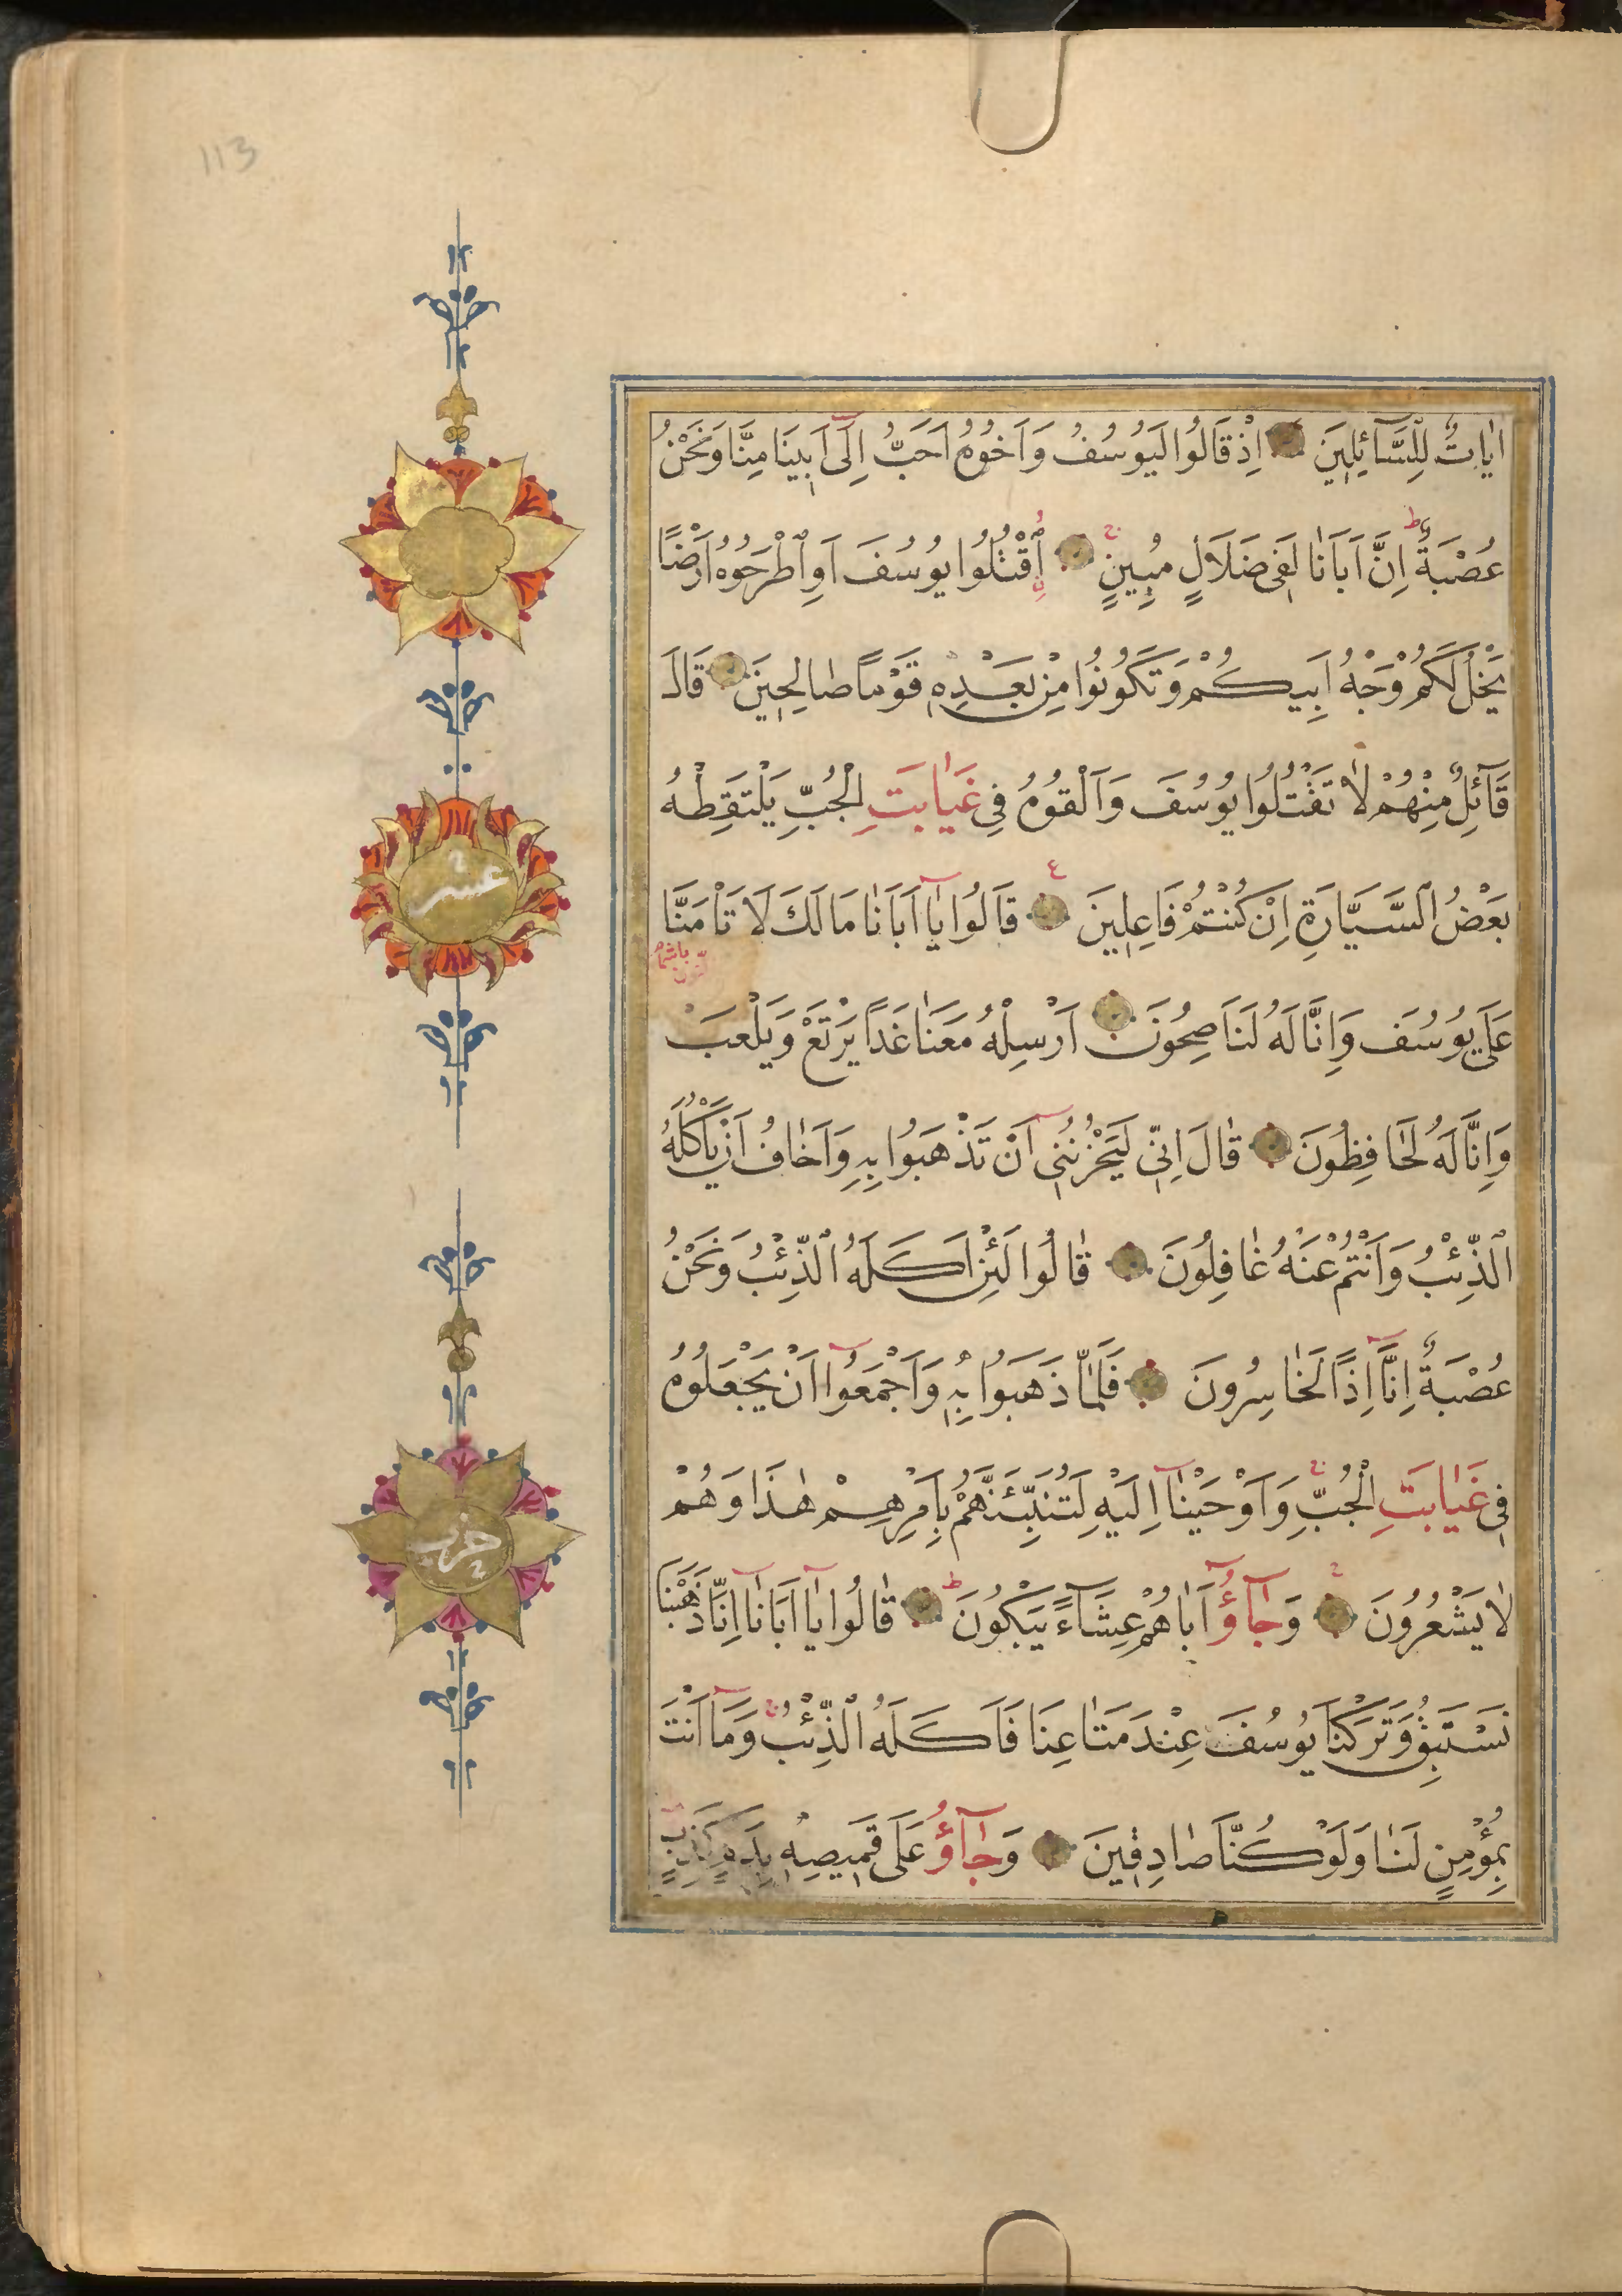 113
اٰيَاتٌ لِلسَّآئِلِينَ اِذْ قَالُوا لَيُوسُفُ وَاَخُوهُ اَحَبُّ اِلَىٓ اَبِينَا مِنَّا وَنَحْنُ
عُصْبَةٌ ط اِنَّ اَبَانَا لَفِى ضَلَالٍ مُبِينٍ ج اُقْتُلُوا يُوسُفَ اَوِ اطْرَحُوهُ اَرْضًا
يَخْلُ لَكُمْ وَجْهُ اَبِيكُمْ وَتَكُونُوا مِنْ بَعْدِهِ قَوْمًا صَالِحِينَ قَالَ
قَآئِلٌ مِنْهُمْ لَا تَقْتُلُوا يُوسُفَ وَاَلْقُوهُ فِى غَيَابَتِ الْجُبِّ يَلْتَقِطْهُ
بَعْضُ السَّيَّارَةِ اِنْ كُنْتُمْ فَاعِلِينَ ع قَالُوا يَآ اَبَانَا مَا لَكَ لَا تَاْمَنَّا
باشمام النون
عَلَى يُوسُفَ وَاِنَّا لَهُ لَنَاصِحُونَ اَرْسِلْهُ مَعَنَا غَدًا يَرْتَعْ وَيَلْعَبْ
وَاِنَّا لَهُ لَحَافِظُونَ قَالَ اِنِّى لَيَحْزُنُنِىٓ اَنْ تَذْهَبُوا بِهِ وَاَخَافُ اَنْ يَاْكُلَهُ
الذِّئْبُ وَاَنْتُمْ عَنْهُ غَافِلُونَ قَالُوا لَئِنْ اَكَلَهُ الذِّئْبُ وَنَحْنُ
عُصْبَةٌ اِنَّآ اِذًا لَخَاسِرُونَ فَلَمَّا ذَهَبُوا بِهِ وَاَجْمَعُوٓا اَنْ يَجْعَلُوهُ
فِى غَيَابَتِ الْجُبِّ ج وَاَوْحَيْنَآ اِلَيْهِ لَتُنَبِّئَنَّهُمْ بِاَمْرِهِمْ هٰذَا وَهُمْ
لَا يَشْعُرُونَ وَجَآؤُٓ اَبَاهُمْ عِشَآءً يَبْكُونَ ط قَالُوا يَآ اَبَانَآ اِنَّا ذَهَبْنَا
نَسْتَبِقُ وَتَرَكْنَا يُوسُفَ عِنْدَ مَتَاعِنَا فَاَكَلَهُ الذِّئْبُ ج وَمَآ اَنْتَ
بِمُؤْمِنٍ لَنَا وَلَوْ كُنَّا صَادِقِينَ وَجَآؤُ عَلَى قَمِيصِهِ بِدَمٍ كَذِبٍ
عشر
حزب